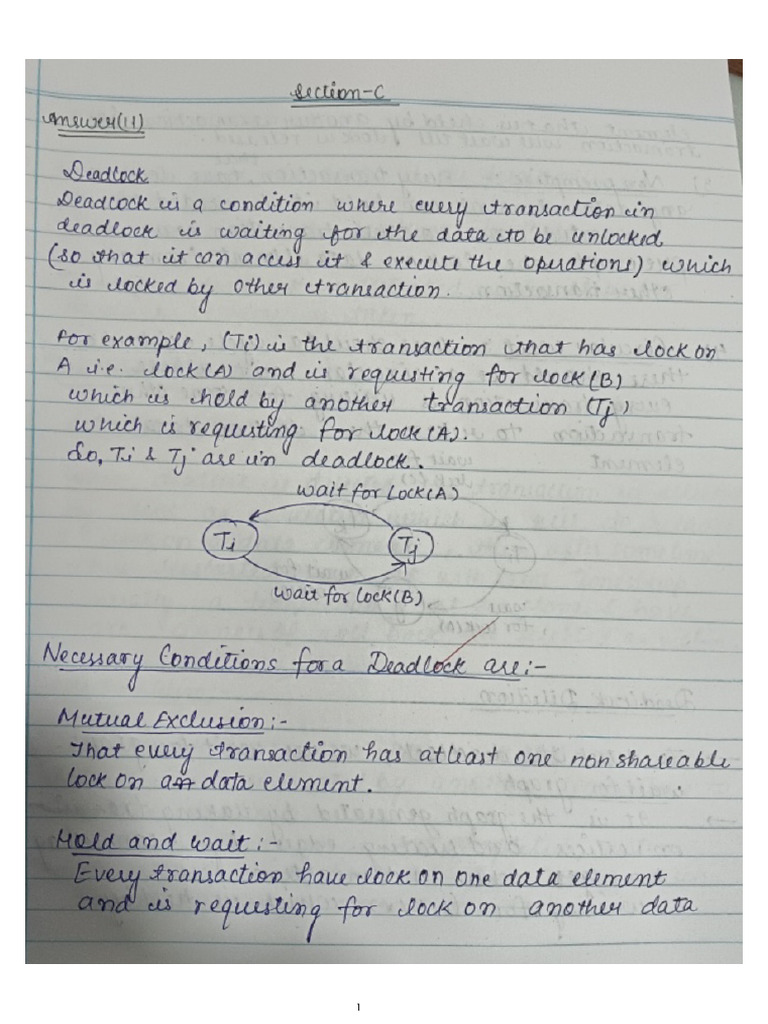 Section-C
Answer(11)
Deadlock
Deadlock is a condition where every transaction in
deadlock is waiting for the data to be unlocked
(so that it can access it & execute the operations) which
is locked by other transaction.
For example, (Ti) is the transaction that has lock on
A i.e. lock(A) and is requesting for lock(B)
which is hold by another transaction (Tj)
which is requesting for lock(A).
So, Ti & Tj are in deadlock.
wait for Lock(A)
Ti
Tj
wait for Lock(B)
Necessary Conditions for a Deadlock are:-
Mutual Exclusion:-
That every transaction has atleast one non shareable
lock on a data element.
Hold and wait:-
Every transaction have lock on one data element
and is requesting for lock on another data
1